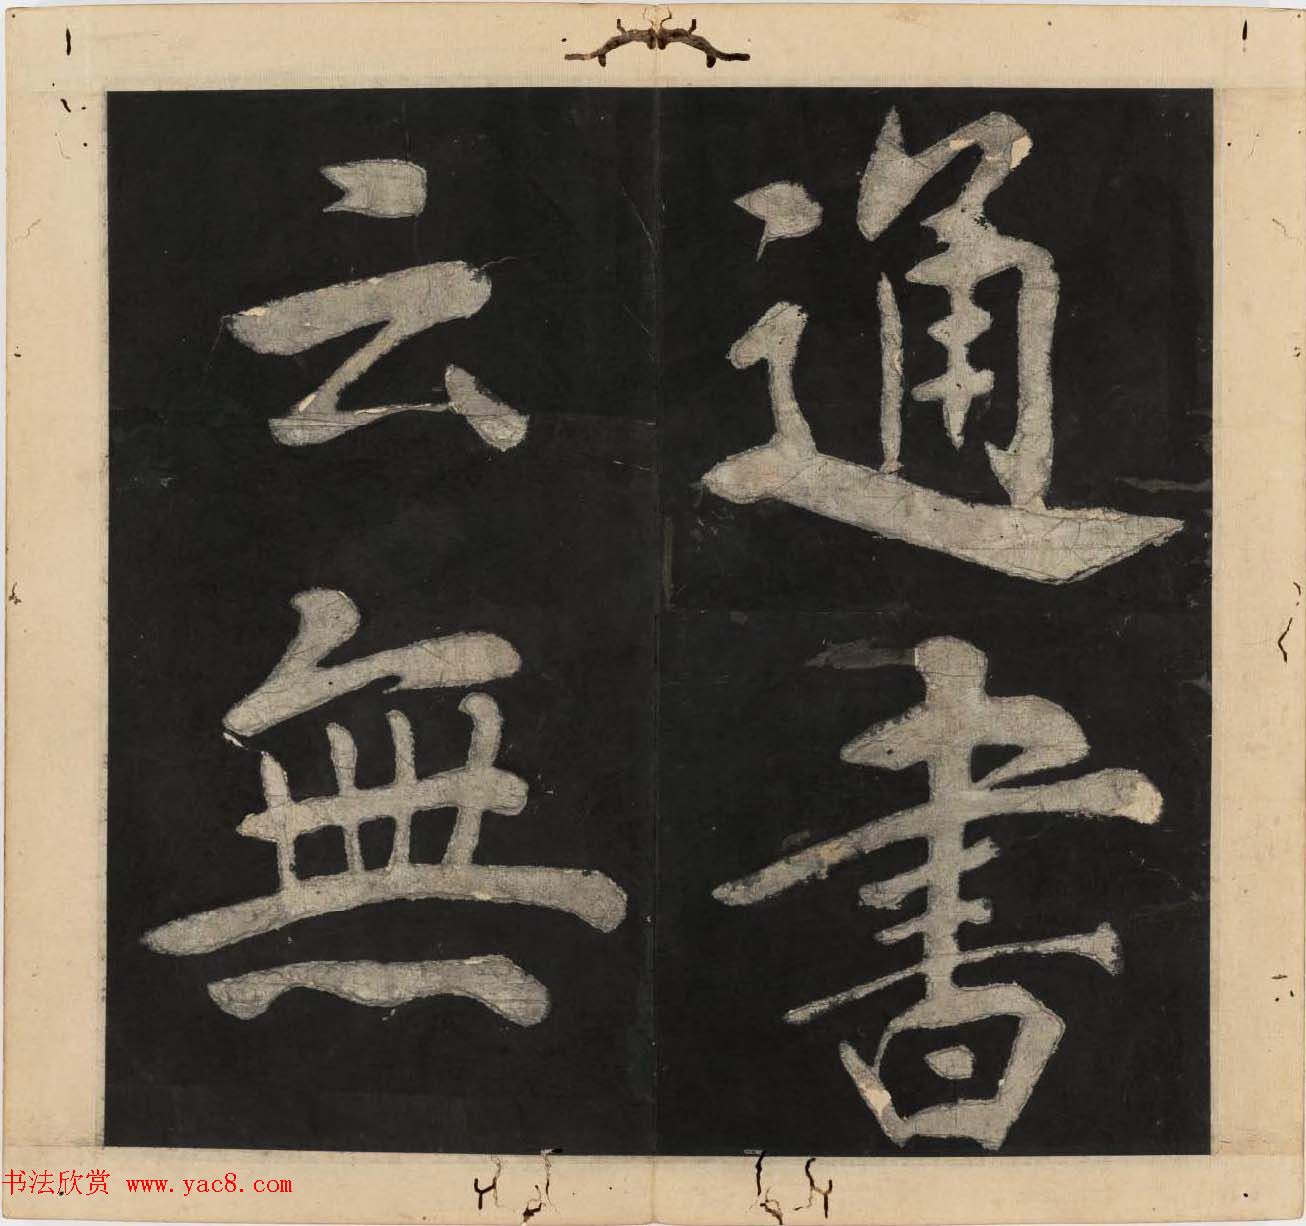 通書
云無
书法欣赏 www.yac8.com